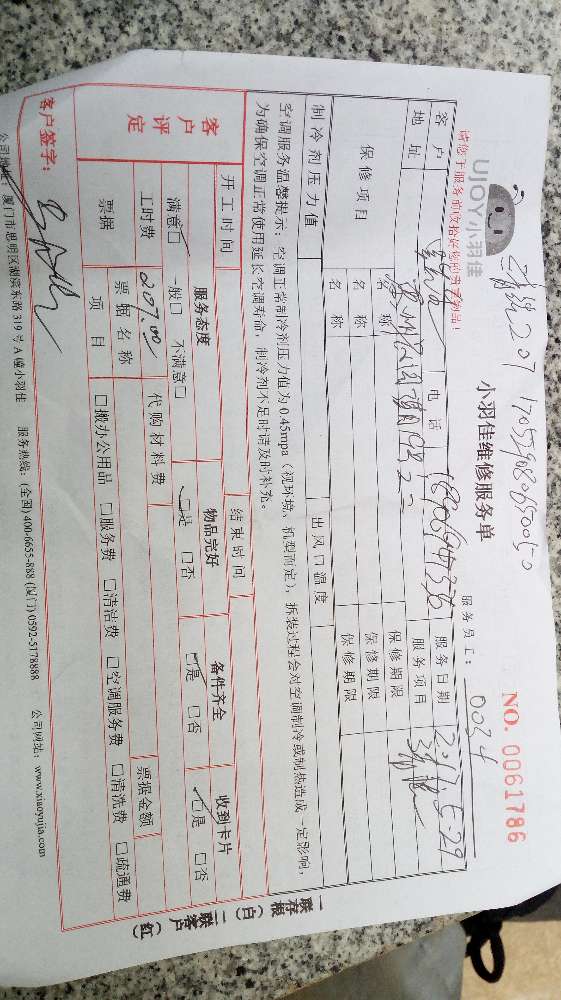 UJOY小羽佳
小羽佳维修服务单
NO. 0061786
207 170559080650050
服务员工: 0034
请您于服务前收拾好您的贵重物品!
客户 电话 服务日期 2017.5.29
地址 服务项目
保修项目 名称 保修期限
名称 保修期限
名称 保修期限
制冷剂压力值 出风口温度
空调服务温馨提示:空调正常制冷剂压力值为0.45mpa(视环境、机型而定),拆装过程会对空调制冷或制热造成一定影响,
为确保空调正常使用延长空调寿命,制冷剂不足时请及时补充。
开工时间 结束时间
客户评定 服务态度 物品完好 备件齐全 收到卡片
满意□ 一般□ 不满意□ □是 □否 □是 □否 □是 □否
工时费 207.00 代购材料费 票据金额
票据 票据名称
项目 □搬办公用品 □服务费 □清洁费 □空调服务费 □清洗费 □疏通费
客户签字:
厦门市思明区湖滨东路319号A幢小羽佳 服务热线:(全国)400-6655-888 (厦门)0592-5178888 公司网站:www.xiaoyujia.com
一联存根(白) 二联客户(红)